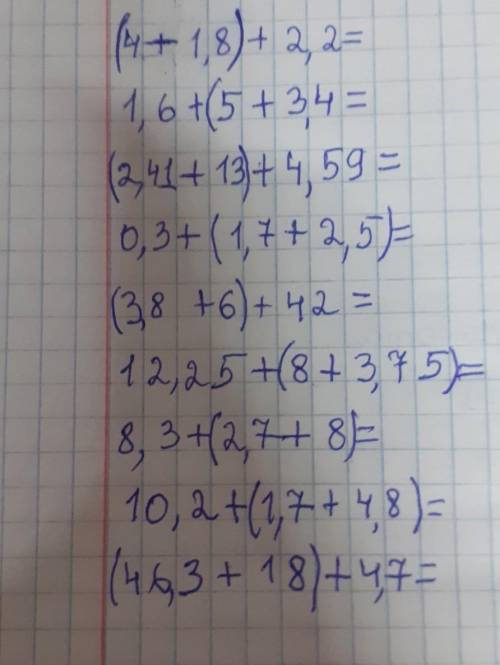 (4 + 1,8) + 2,2 =
1,6 + (5 + 3,4 =
(2,41 + 13) + 4,59 =
0,3 + (1,7 + 2,5) =
(3,8 + 6) + 42 =
12,25 + (8 + 3,75) =
8,3 + (2,7 + 8) =
10,2 + (1,7 + 4,8) =
(46,3 + 18) + 4,7 =